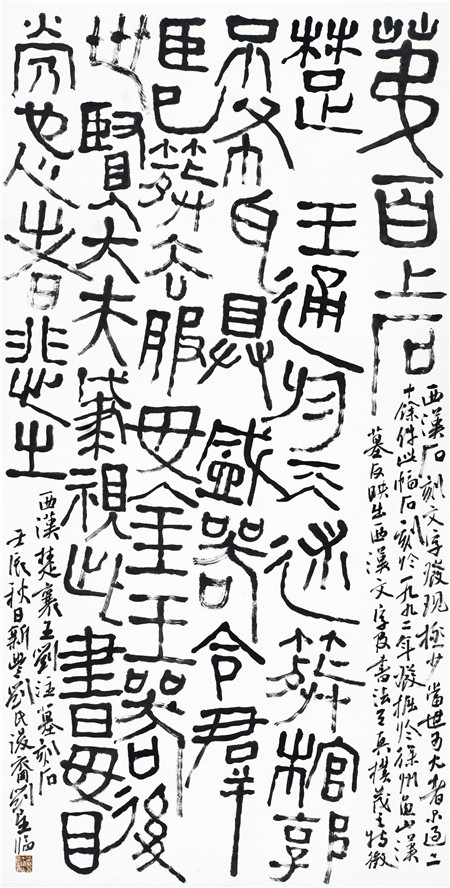 第百上石
楚 王通於天述葬棺郭
不布瓦鼎盛器令群
臣已葬去服毋金玉器後
世賢大夫幸視此書毋目
勞也仁者悲之
西漢石刻文字發現極少當世可大者不過二
十餘件此幅石刻於一九九二年發掘於徐州龜山漢
墓反映出西漢文字及書法之真樸茂之特徵
西漢楚襄王劉注墓刻石
壬辰秋日新豐劉氏後裔劉 臨